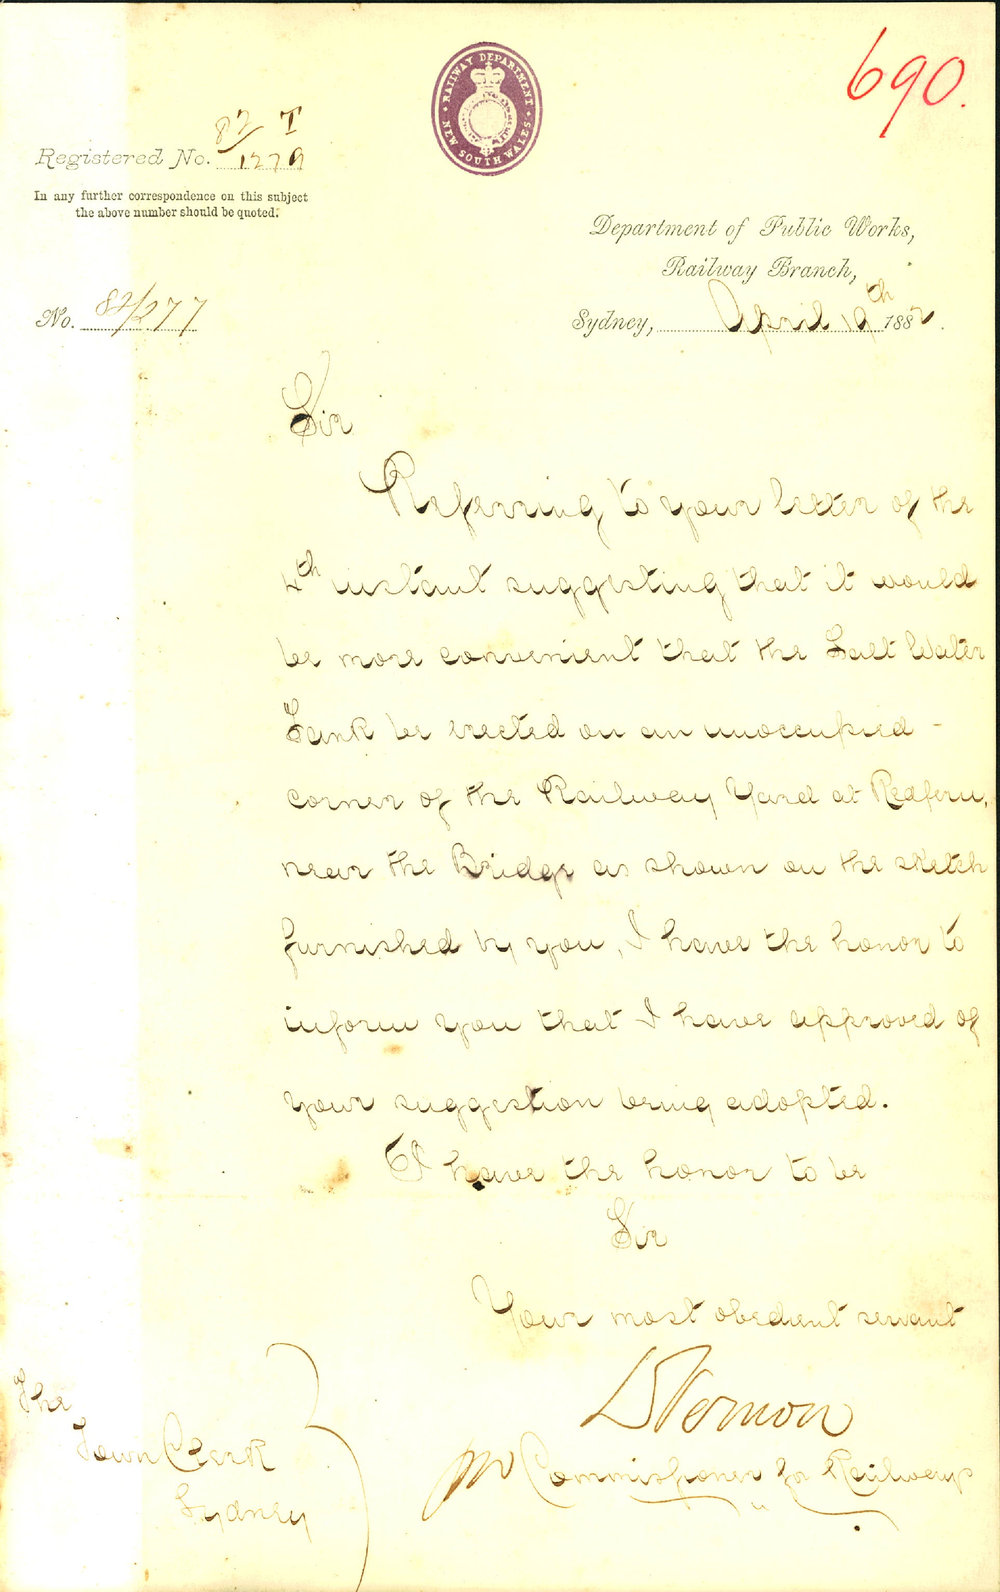 690.
RAILWAY DEPARTMENT
NEW SOUTH WALES
82/ T
Registered No. 1279
In any further correspondence on this subject
the above number should be quoted.
Department of Public Works,
Railway Branch,
No. 82/277
Sydney, April 19th 1882.
Sir
Referring to your letter of the
4th instant suggesting that it would
be more convenient that the Salt Water
Tank be erected on an unoccupied -
corner of the Railway Yard at Redfern,
near the Bridge as shown on the sketch
furnished by you, I have the honor to
inform you that I have approved of
your suggestion being adopted.
I have the honor to be
Sir
Your most obedient servant
DVernon
pro Commissioner for Railways
The
Town Clerk
Sydney